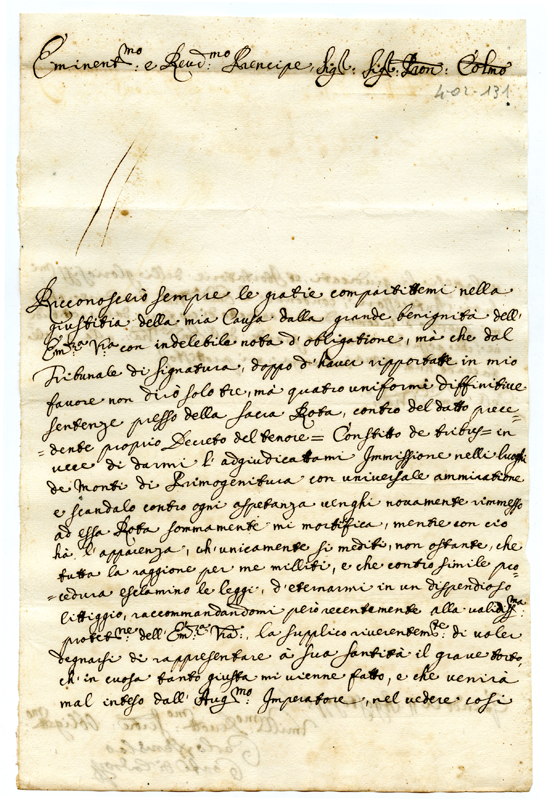 Eminent.mo e Reud.mo Prencipe, Sig.r Sig.r Pron: Colmo
4-02-131
Ricconoscerò sempre le gratie compartittemi nella
giustitia della mia Causa dalla grande benignità dell'
Em.za V.ra con indelebile nota d'obligatione, mà che dal
Tribunale di Signatura, doppo d'hauer ripportate in mio
fauore non dirò solo tre, mà quatro uniformi diffinitiue
sentenze presso della sacra Rota, contro del datto prece=
=dente proprio Decreto del tenore = Constito de tribus = in
vece di darmi l'adgiudicattami Immissione nelli luoghi
de Monti di Primogenitura con universale ammiratione
e scandalo contro ogni aspetanza venghi novamente rimmesso
ad essa Rota sommamente mi mortifica, mentre con ciò
hà l'apparenza, ch'unicamente si mediti, non ostante, che
tutta la raggione per me milliti, e che contro simile pro=
=cedura esclamino le leggi, d'eternarmi in un dispendioso
littiggio, raccommandandomi però recentemente alla validiss.ma
protet.ne dell'Em.za V.ra, la supplico riverentem.te di voler
degnarsi di rappresentare à sua santità il grave torto,
ch'in cuosa tanto giusta mi vienne fatto, e che venirà
mal inteso dall'Aug.mo Imperatore, nel vedere così